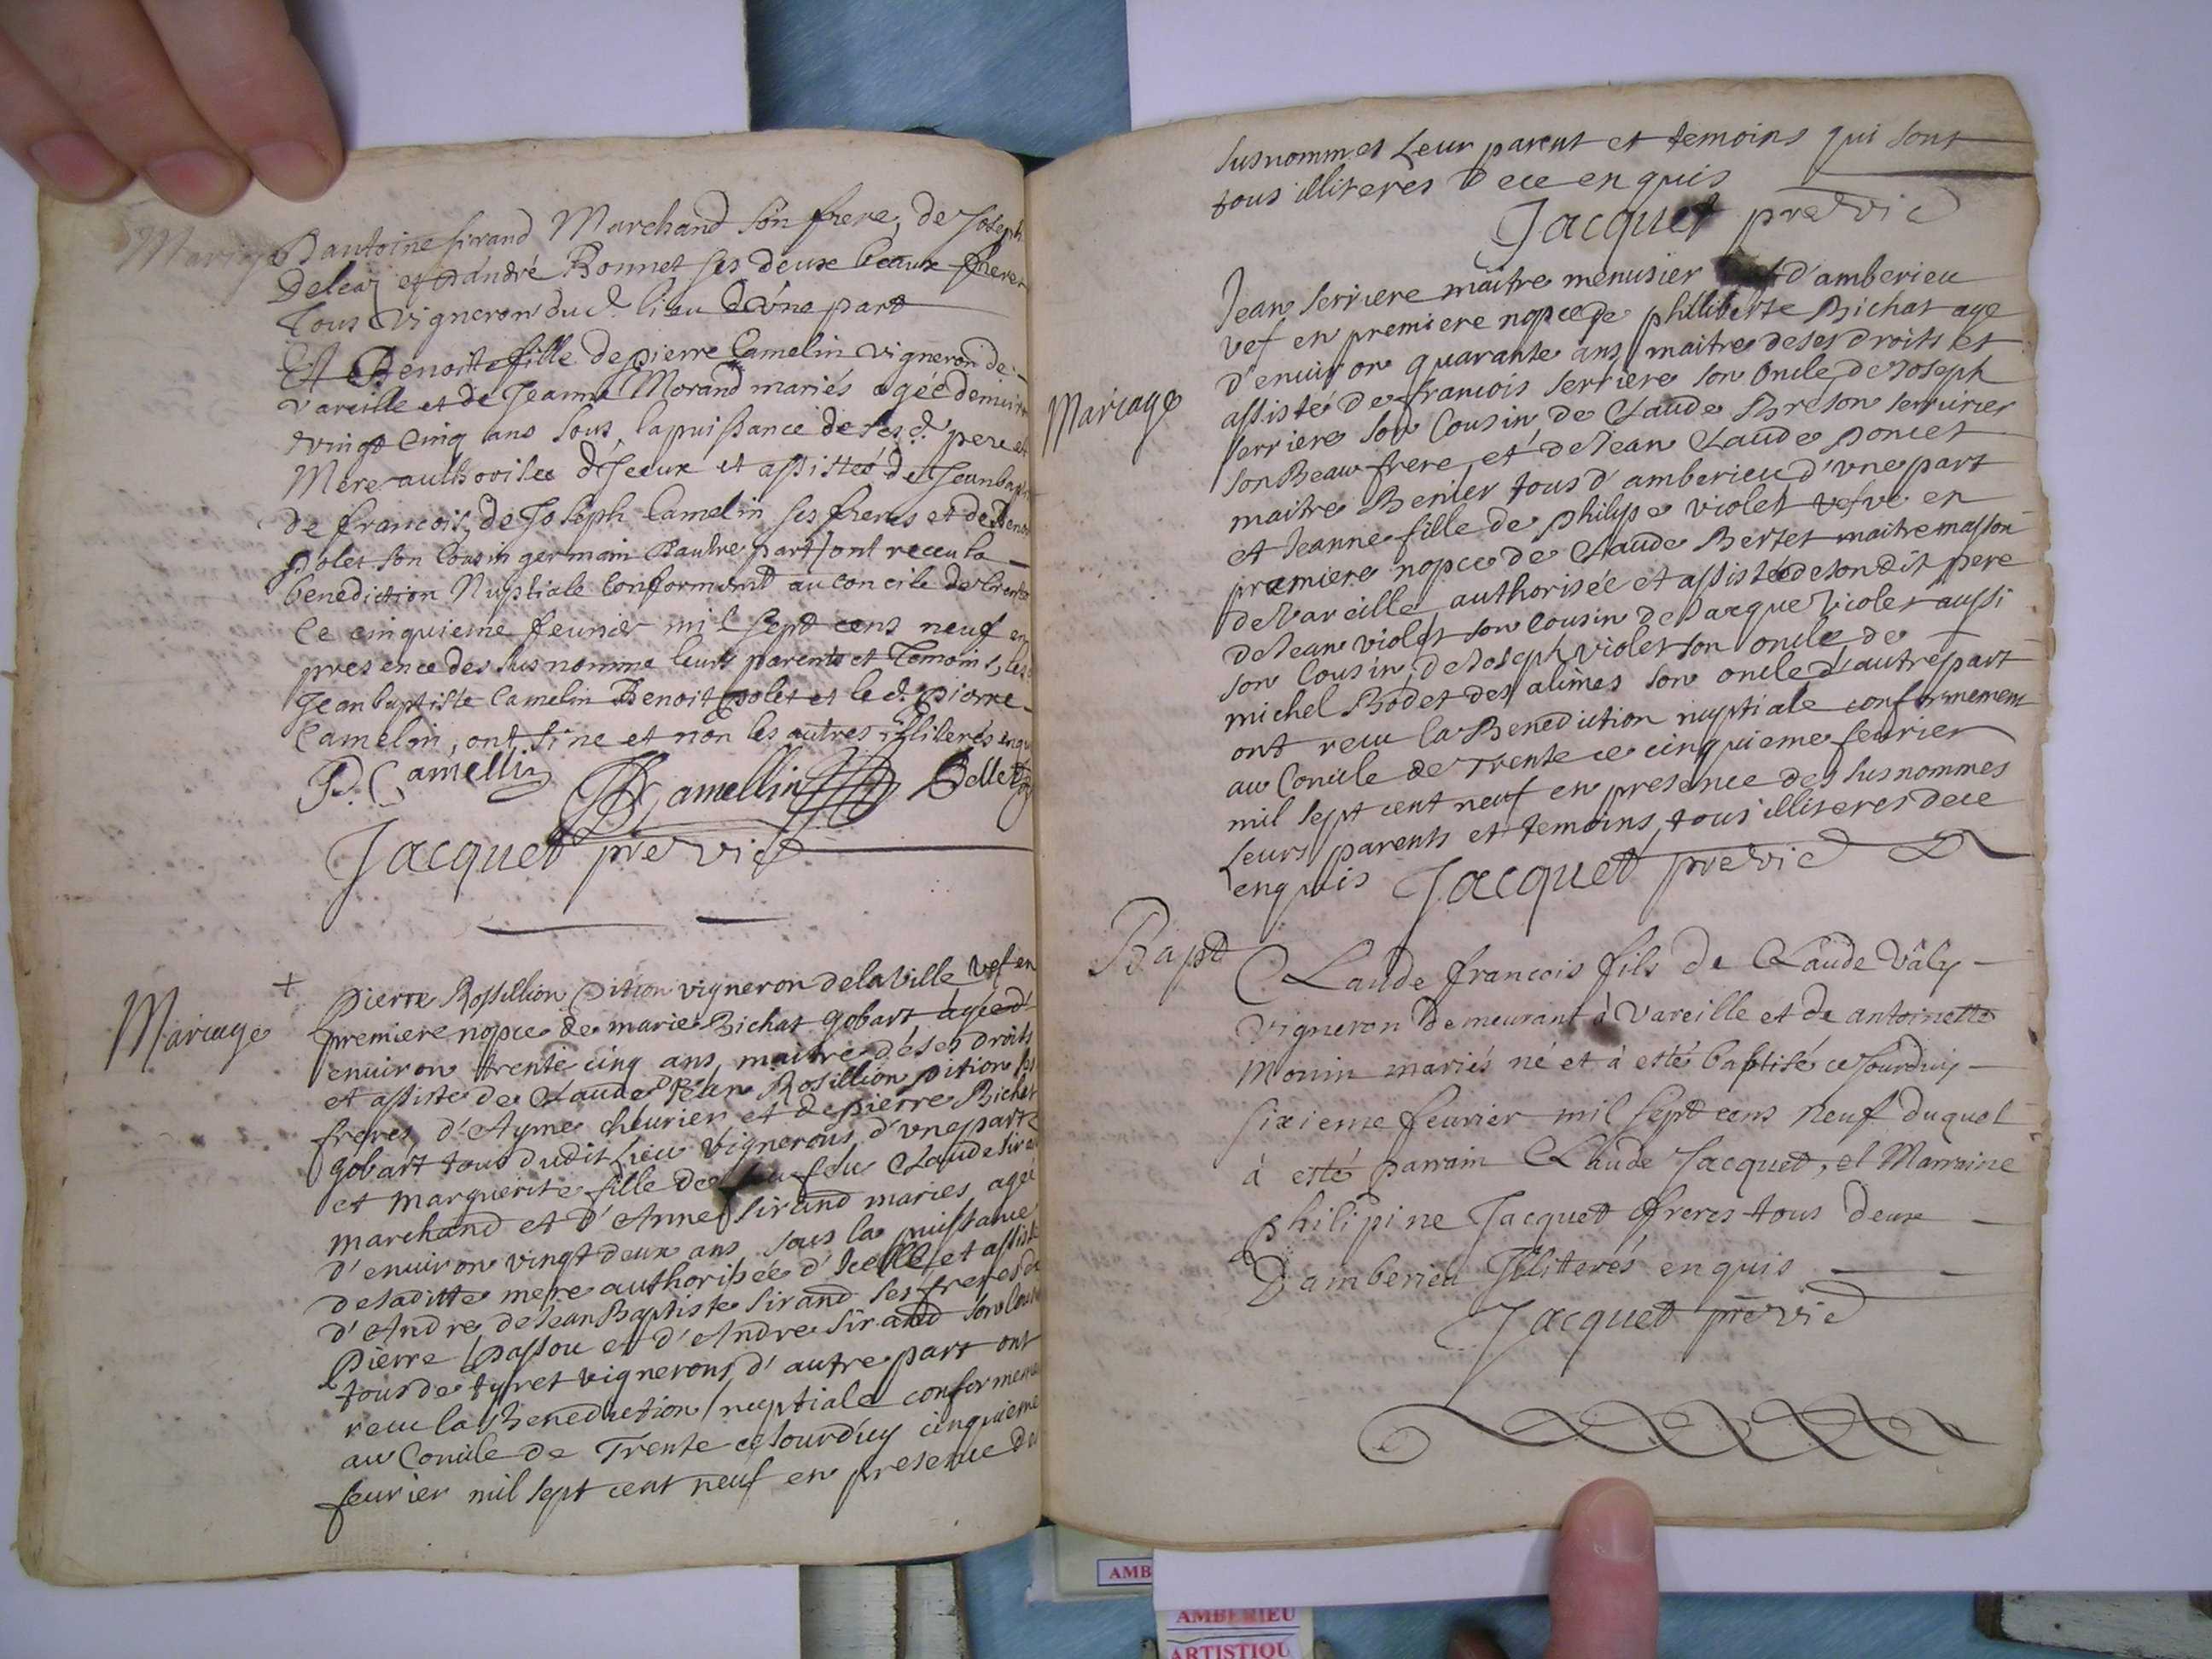 Mariage
D antoine sirand Marchand son frere, de Joseph
Deleaz et d'andré Bonnet ses deux beaux freres
Tous Vigneron dud. lieu d'vne part
Et Benoite fille de pierre Camelin vigneron de
Vareille et de Jeanne Morand mariés agée denviron
vingt Cinq ans sous la puissance de sesd. pere et
Mere authorisée d'Jceux et assistée de Jeanbap
de francois, de Joseph Camelin ses freres et de Benoi
polet son Cousin germain d'autre part ont receu la
benediction Nuptiale Conformemt au Concile de trente
Ce cinquieme feurier mil sept cens neuf en
presence des susnomme leurs parents et Temoins, les
Jean baptiste Camelin Benoit polet et led. pierre
Camelin, ont sine et non les autres Jlliterés enqu
P. Camellin JB Camellin Bellet
Jacquet pre vic
Mariage
+
pierre Rossillion pition vigneron de la Ville vef en
premiere nopce de marie Bichat gobart agée d'
enuiron trente cinq ans, maitre de ses droits
et assiste de Claude Jean Rosillion pition ses
freres, d'Ayme cheurier et de pierre Bichat
gobart tous dudit Lieu vignerons, d'vne part
et marguerite fille de feu Claude sirand
marchand et d'Anne sirand maries agée
d'enuiron vingt deux ans sous la puissance
de saditte mere authorisée d'Jcelle, et assiste
d'Andre de Jean Baptiste sirand ses freres de
pierre passou et d'Andre sirand son cousin
tous de tyret vignerons, d'autre part ont
receu la Benediction nuptiale conformeme
au Concile de Trente ce Jourd'uy cinquieme
feurier mil sept cent neuf en presence de
susnommes Leur parent et temoins qui sont
tous illiteres de ce enquis
Jacquet pre vic
Mariage
Jean serriere maitre menusier d'amberieu
vef en premiere nopce de philliberte Bichat age
d'enuiron quarante ans, maitre de ses droits et
assisté de francois serriere son Oncle, de Joseph
serriere son Cousin, de Claude Breton serrurier
son Beau frere, et de Jean Claude poncet
maitre Benier tous d'amberieu d'vne part
et Jeanne fille de philipe violet vefve en
premiere nopce de Claude Bertet maitre masson
de Vareille, authorisée et assistée de son dit pere
de Jean violet son cousin de Jacque violet aussi
son Cousin, de Joseph violet son oncle de
michel Bodet des alimes son oncle d'autre part
ont receu la Benediction nuptiale conformement
au Concile de Trente ce cinquieme feurier
mil sept cent neuf en presence des susnommes
Leurs parents et temoins, tous illiteres de ce
enquis Jacquet pre vic
Bapt
Claude francois fils de Claude Vâly
Vigneron demeurant à Vareille et de antoinette
Monin mariés né et à esté baptisé ce Jourduy
sixieme feurier mil sept cens neuf duquel
à esté parrain Claude Jacquet, et Marraine
philipine Jacquet freres tous deux
D'amberieu Jlliterés enquis
Jacquet pre vic
AMB
AMBERIEU
ARTISTIQU